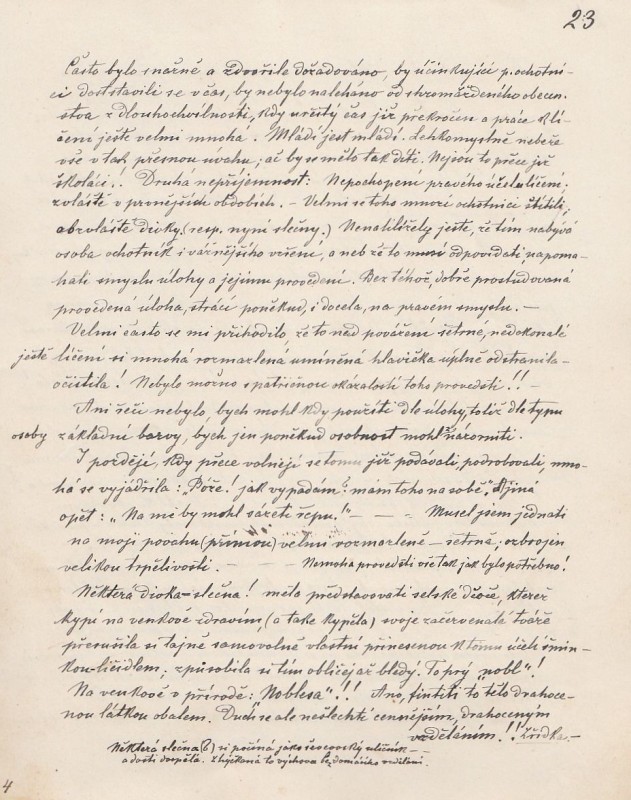 23
Často bylo snažně a zdvořile dožadováno, by účinkující p. ochotní-
ci dostavili se včas, by nebylo naleháno od shromážděného obecen-
stva z dlouhochvílnosti, kdy určitý čas již překročen a práce k lí-
čení ještě velmi mnohá. Mládí jest mládí. Lehkomyslně nebéře
vše v tak přesnou úvahu; ač by se mělo tak díti. Nejsou to přece již
školáci! Druhá nepříjemnost: Nepochopení pravého účelu líčení;
zvláště v prvnějších obdobích. — Velmi se toho mnozí ochotníci štítili,
obzvláště dívky, (resp. nyní slečny.) Nenahlížely ještě, že tím nabývá
osoba ochotník i vážnějšího vzezření, a neb že to musí odpovídati, napoma-
hati smyslu úlohy a jejímu provedení. Bez téhož, dobře prostudovaná
provedená úloha, strácí poněkud, i docela, na pravém smyslu. —
Velmi často se mi přihodilo, že to nad pováření šetrné, nedokonalé
ještě líčení si mnohá rozmarlená umíněná hlavička úplně odstranila-
očistila! Nebylo možno s patřičnou okázalostí toho provésti!! —
Ani řeči nebylo, bych mohl kdy použíti dle úlohy, totiž dle typu
osoby základní barvy, bych jen poněkud osobnost mohl znázorniti.
I později, kdy přece volněji se tomu již podávali, podrobovali, mno-
há se vyjádřila: „Bóže! jak vypadám? mám toho na sobě". A jiná
opět: „Na mě by mohl sázeti řepu!" — — — Musel jsem jednati
na moji povahu (přímou) velmi rozmarleně — šetrně; ozbrojen
velikou trpělivostí. — — Nemoha provésti vše tak jak bylo potřebno!
Některá dívka-slečna! měla představovati selské děvče, kteréž
kypí na venkově zdravím, (a také kypěla) svoje začervenalé tváře
přesušila si tajně samovolně vlastní přinesenou k tomu účeli šmin-
kou-líčidlem; způsobila si tím obličej až bledý. To prý „nobl"!
Na venkově v přírodě: „Noblesa"!! Ano, fintiti to tělo draho­ce-
nou látkou obalem. Duch se ale nešlechtí cennějším, drahoceným
vzděláním!! Zřídka. —
Některá slečna (6) si počíná jako ševcovský uličník — —
a dosti dospělá. Zlyjckaná to výchova bez domácího vzdělání.
4